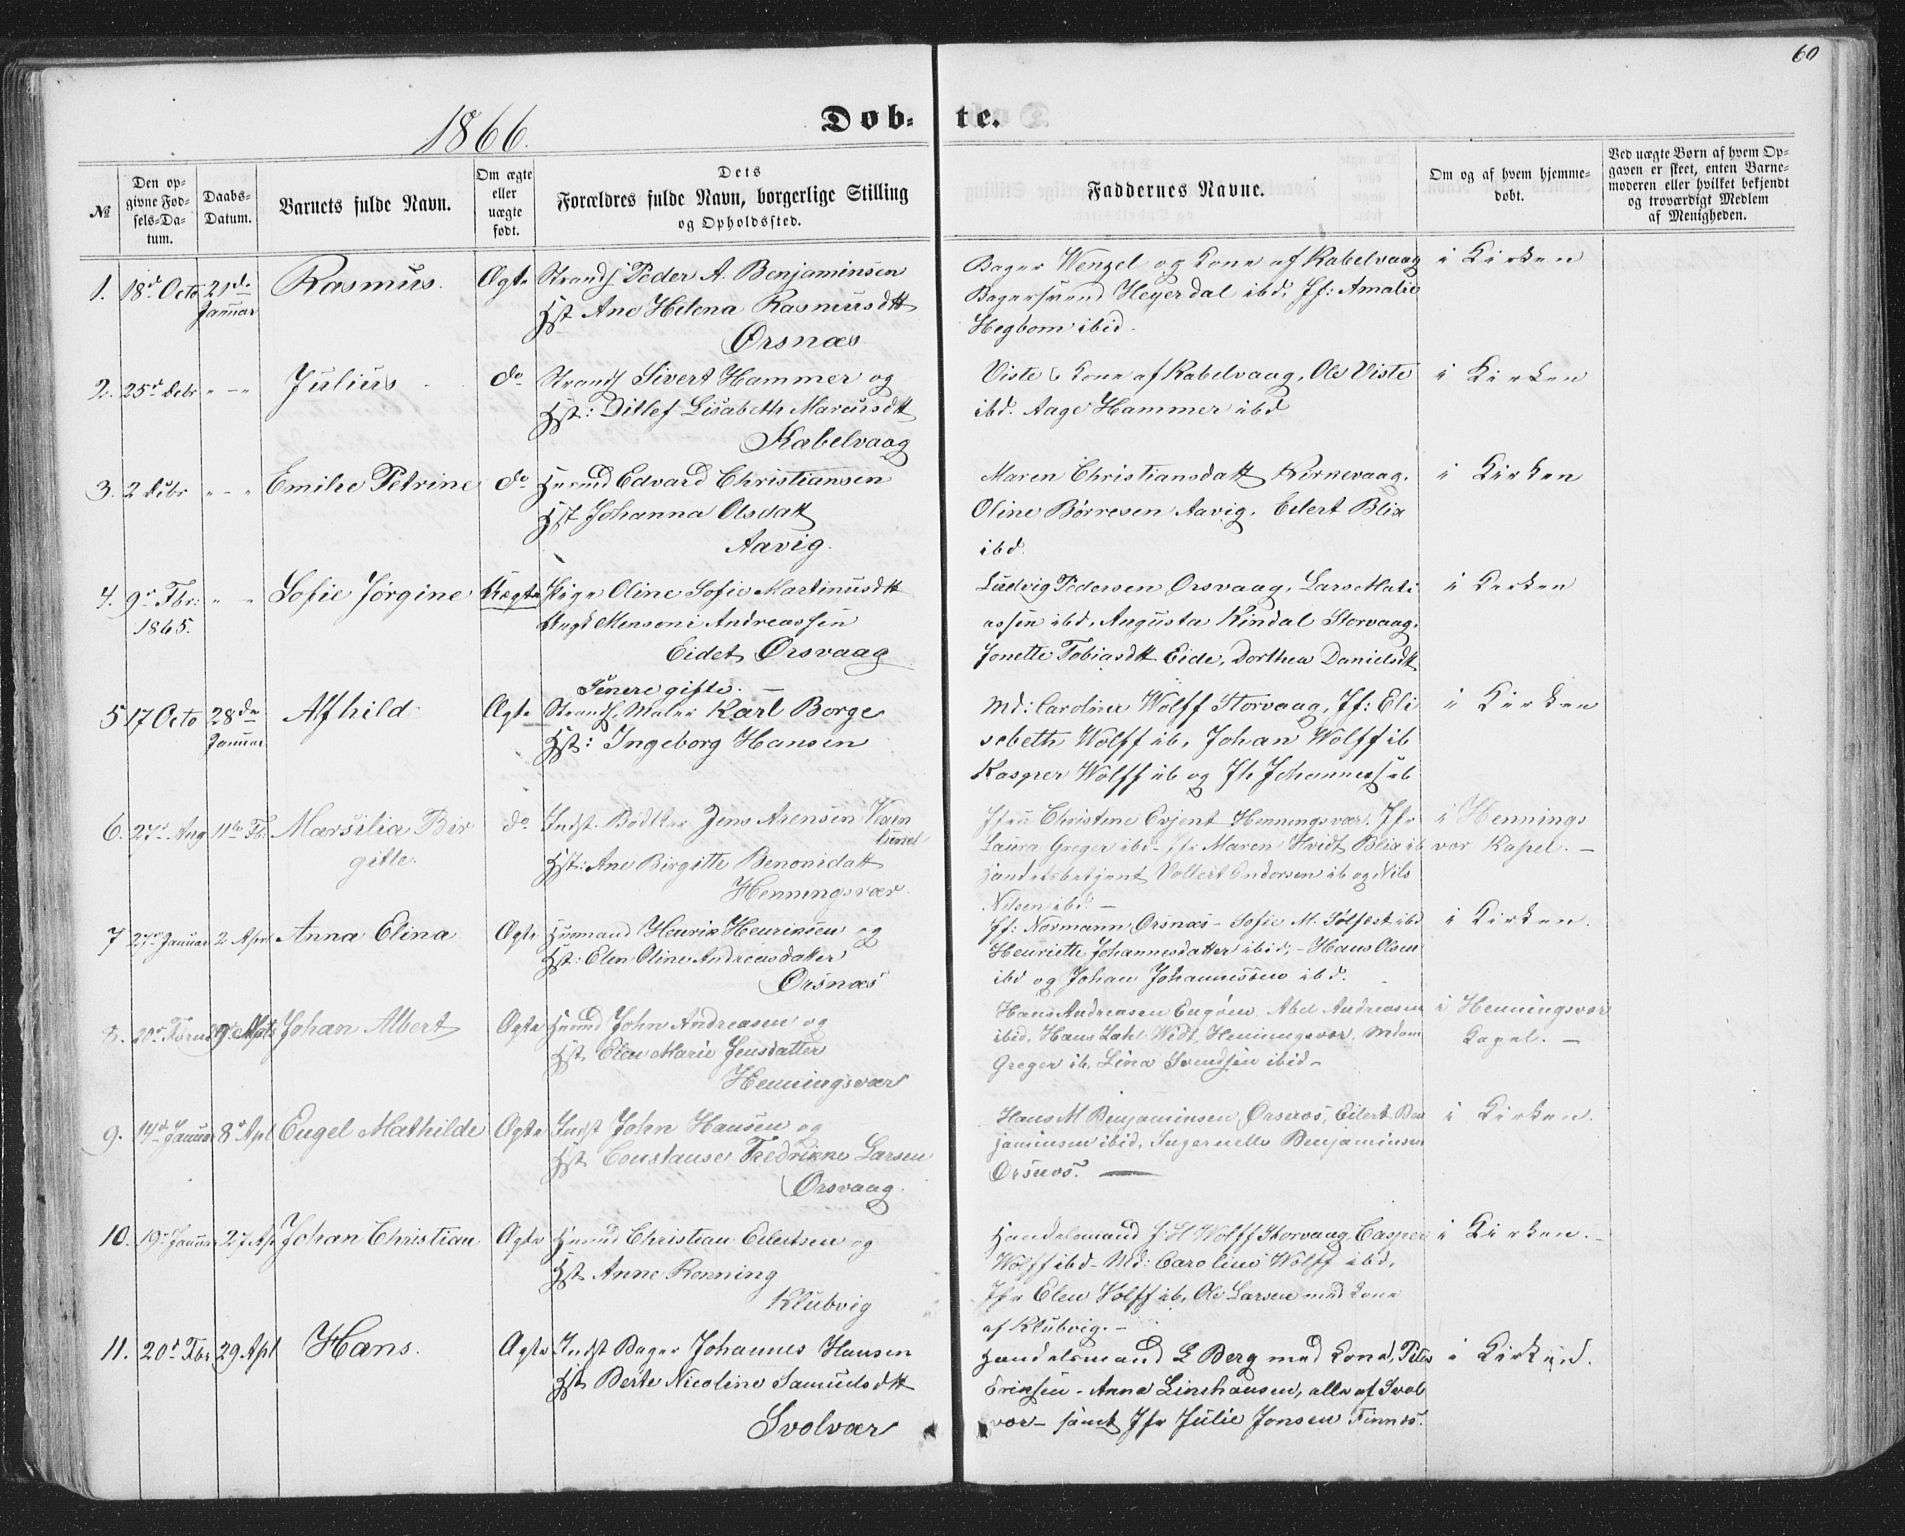 60
1866.
Døb- te.
№
Den op-
givne Fød-
sels-Da-
tum.
Daabs-
Datum.
Barnets fulde Navn.
Om ægte
eller
uægte
født.
Dets
Forældres fulde Navn, borgerlige Stilling
og Opholdssted.
Faddernes Navne.
Om og af hvem hjemme-
døbt.
Ved uægte Børn af hvem Op-
gaven er skeet, enten Barne-
moderen eller hvilket bekjendt
og troværdigt Medlem
af Menigheden.
1. 18d Octo 21de Januar Rasmus. Ægte Strands Peder A. Benjaminsen
Hst Ane Helena Rasmusdtt
Ørsnæs
Bager Wenzel og Kone af Kabelvaag
Bagersvend Heyerdal ibd, Jf: Amalie
Hegbom ibid.
i Kirken
2. 25d Debr " - " Julius do Strands Sivert Hammer og
Hst: Ditlef Lisabeth Marcusdtt
Kabelvaag
Viste & Kone af Kabelvaag, Ole Viste
ibd. Aage Hammer ibd
i Kirken
3. 2 Debr " - " Emilie Petrine do Husmd Edvard Christiansen
Hst Johanna Olsdatt
Aavig.
Maren Christiansdatt Kirkevaag.
Oline Børresen Aavig. Eilert Blix
ibd.
i Kirken
4. 9r Fbr: 1865. " " Sofie Jørgine Uægte Pige Oline Sofie Martinusdtt
Ungk Mensoni Andreassen
Eidet Ørsvaag
Ludvig Pedersen Ørsvaag, Lars Mati
assen ibd, Augusta Kindal Storvaag.
Jonette Tobiasdtt Eide, Dorthea Danielsdtt
i Kirken
Senere gifte. —
5 17 Octo 28de Januar Alfhild Ægte Strands, Maler Karl Borge
Hst: Ingeborg Hansen
Md: Caroline Wolff Storvaag, Jf: Eli
sebeth Wolff ib, Johan Wolff ib
Kasper Wolff ib og Jh Johannes ib
i Kirken
6. 27d Aug 11te Fb. Marsilia Bir
gitte. do Indst. Bødker Jens Arensen
Hst: Ane Birgitte Benonidatt
Henningsvær.
Jfru Christine Evjent Henningsvær, Jfr
Laura Greger ibd- Jfr Maren Hvidt Blix ib
Handelsbetjent Vollert Andersen ib og Nils
Nilsen ibd —
i Hennings
vær Kapel. —
7 27de Januar 2 Apr Anna Elina Ægte Husmand Henrik Henriksen og
Hst: Elen Oline Andreasdatter
Ørsnæs
Jf: Normann Ørsnæs - Sofie M. Sølfest ibd
Henriette Johannesdatter ibid; - Hans Olsen
ibd og Johan Johannessen ibd.
i Kirken.
8. 20de Johan Albert Ægte Husmd John Andreasen og
Hst. Elen Marie Jensdatter
Henningsvær
Hans Andreasen Engøen, Abel Andreasen
ibid, Hans Zahl Wedt Henningsvær, Mdam
Greger ib, Lina Svendsen ibid-
i Henningsvær
Kapel. —
9. 14d Januar 8d Apl Engel Mathilde Ægte Indst John Hansen og
Hst Constanse Fredrikke Larsen
Ørsvaag.
Hans M Benjaminsen Ørsnæs, Eilert Ben
jaminsen ibid, Ingernelle Benjaminsen
Ørsnæs. —
i Kirken.
10. 19d Januar 27 Ap Johan Christian Ægte Husmd Christian Eilertsen og
Hst Anne Rønning
Klubvig
Handelsmand J H Wolff Storvaag, Casper
Wolff ibd- Md: Caroline Wolff ibd,
Jfr Elen Wolff ib, Ole Larsen med Kone
af Klubvig. —
i Kirken. -
11. 20d Fbr 29 Apl Hans. Ægte Indst Bager Johannes Hansen
Hst Berte Nicoline Samuelsdtt
Svolvær
Handelsmand L Berg med Kone, Peter
Eriksen - Anna Linehausen, alle af Svol
vær - samt Jfr Julie Jonsen Finnes.
i Kirken.